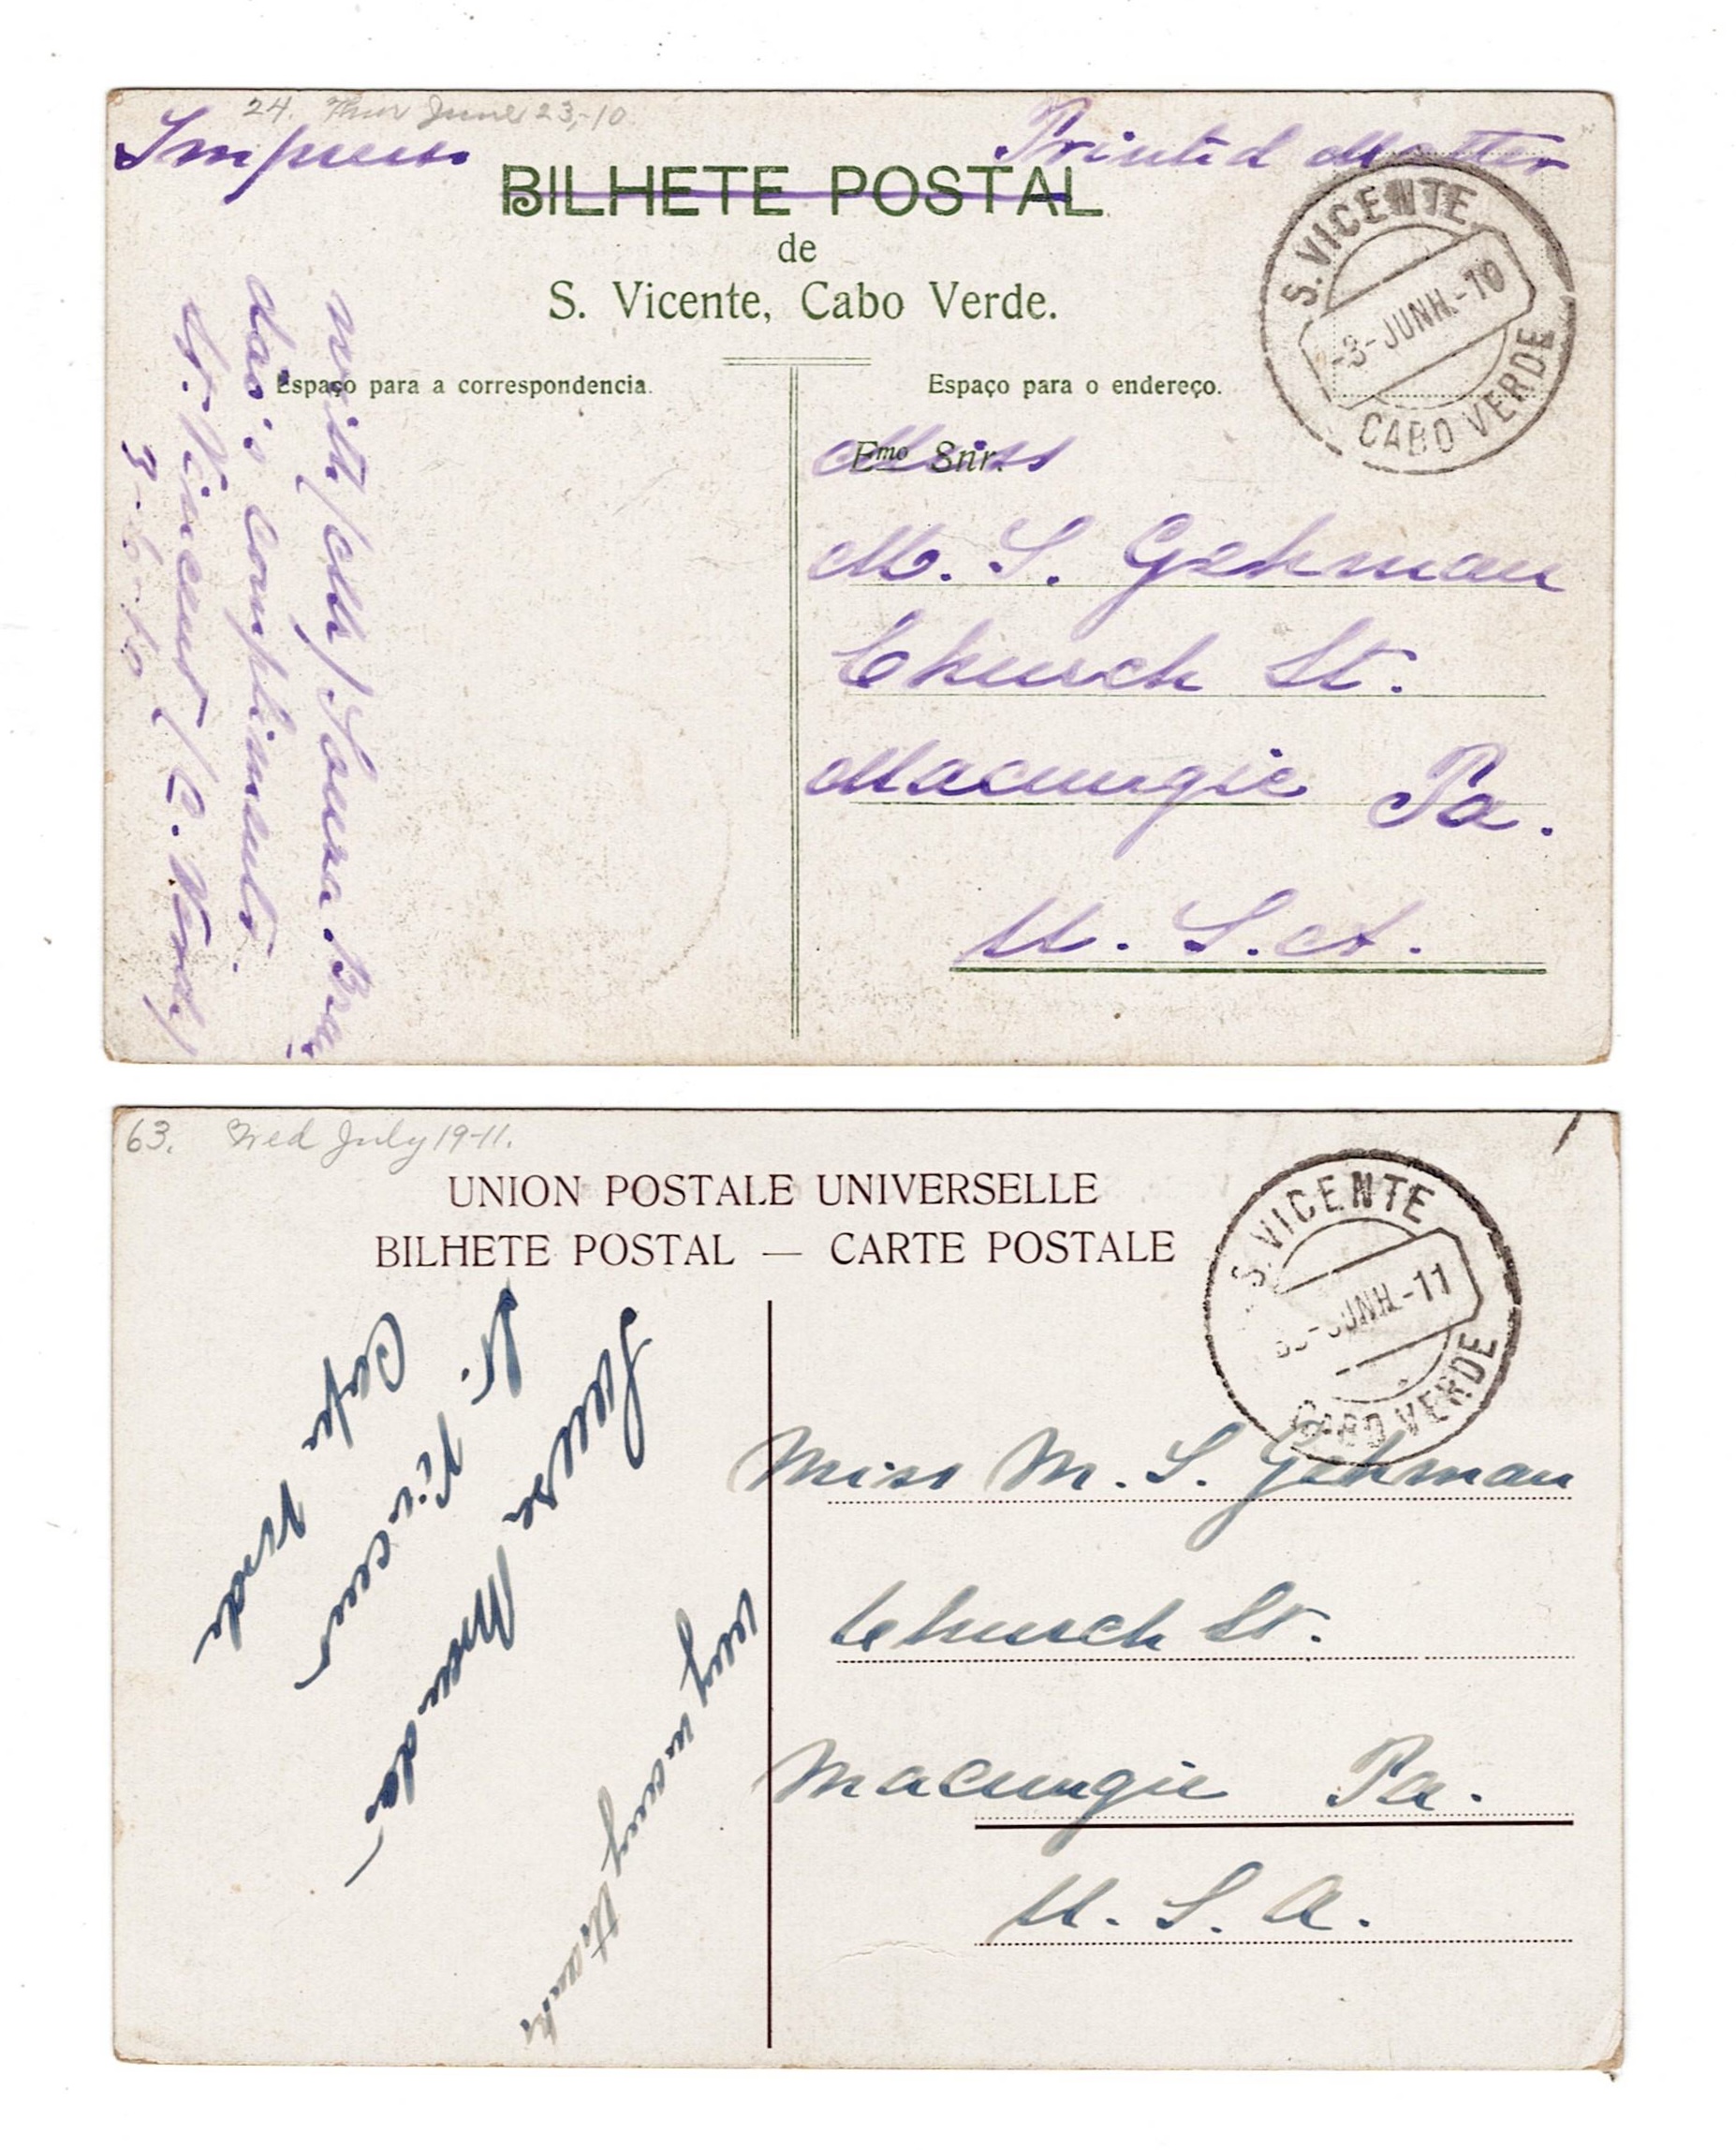 24. Thur June 23,-10
Impresso
Printed Matter
BILHETE POSTAL
de
S. Vicente, Cabo Verde.
S. VICENTE
-3-JUNH.-10
CABO VERDE
Espaço para a correspondencia.
Espaço para o endereço.
Emo Snr.
Miss
M. S. Gehman
Church St.
Macungie Pa.
U. S. A.
dois compliments.
St. Vincent / C. Verde /
3-6-10
63. Wed July 19-11.
UNION POSTALE UNIVERSELLE
BILHETE POSTAL — CARTE POSTALE
S. VICENTE
JUNH.-11
CABO VERDE
Miss M. S. Gehman
Church St.
Macungie Pa.
U. S. A.
very many thanks
St. Vincent
Cape Verde